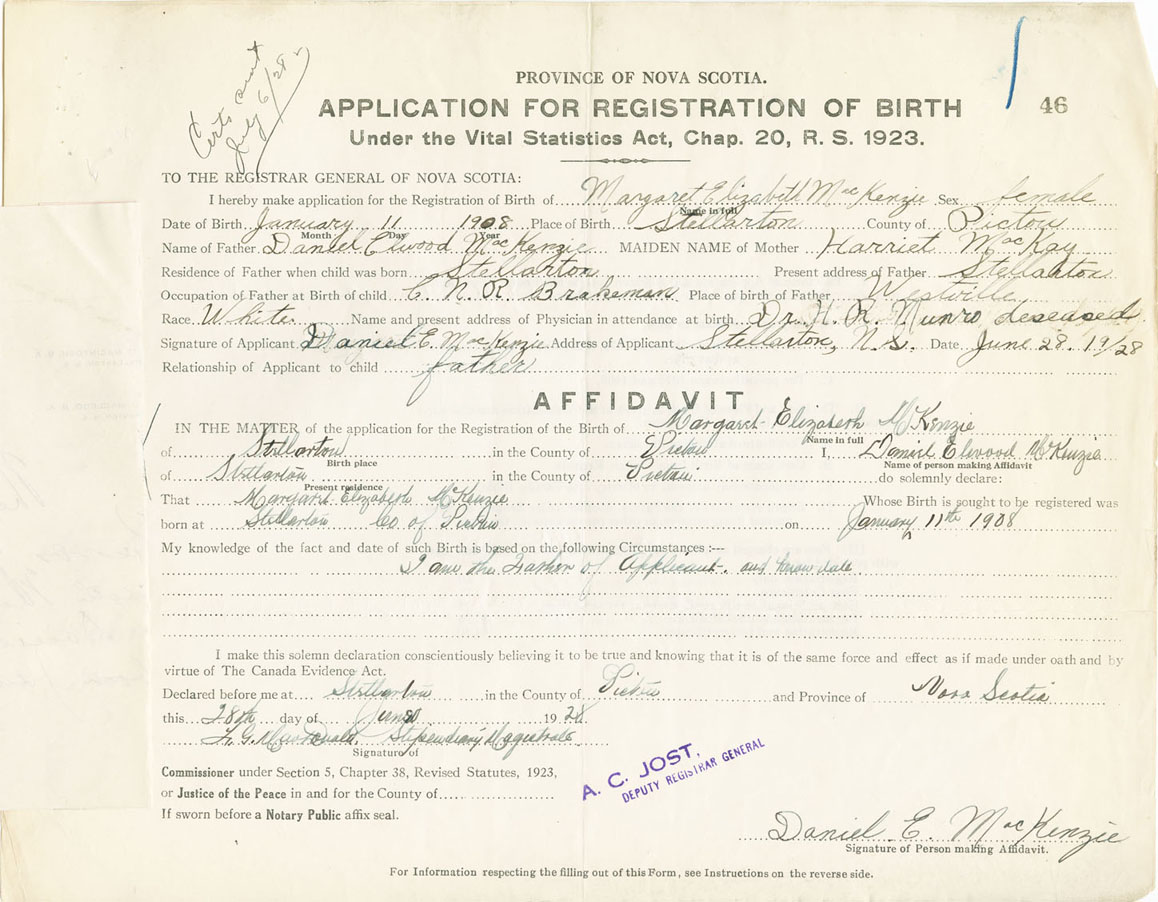 Certs sent
July 6/28
46
PROVINCE OF NOVA SCOTIA.
APPLICATION FOR REGISTRATION OF BIRTH
Under the Vital Statistics Act, Chap. 20, R. S. 1923.
TO THE REGISTRAR GENERAL OF NOVA SCOTIA:
I hereby make application for the Registration of Birth of Margaret Elizabeth MacKenzie Sex female
Name in full
Date of Birth January 11 1908 Place of Birth Stellarton County of Pictou
Month Day Year
Name of Father Daniel Elwood MacKenzie MAIDEN NAME of Mother Harriet MacKay
Residence of Father when child was born Stellarton Present address of Father Stellarton
Occupation of Father at Birth of child C. N. R. Brakeman Place of birth of Father Westville
Race White Name and present address of Physician in attendance at birth Dr. H. R. Munro deseased
Signature of Applicant Daniel E. MacKenzie Address of Applicant Stellarton, N.S. Date June 28. 19/28
Relationship of Applicant to child father
AFFIDAVIT
IN THE MATTER of the application for the Registration of the Birth of Margaret Elizabeth McKenzie
Name in full
of Stellarton in the County of Pictou I, Daniel Elwood McKenzie
Birth place Name of person making Affidavit
of Stellarton in the County of Pictou do solemnly declare:
Present residence
That Margaret Elizabeth McKenzie Whose Birth is sought to be registered was
born at Stellarton Co of Pictou on January 11th 1908
My knowledge of the fact and date of such Birth is based on the following Circumstances :—
I am the Father of Applicant and know date
I make this solemn declaration conscientiously believing it to be true and knowing that it is of the same force and effect as if made under oath and by
virtue of The Canada Evidence Act.
Declared before me at Stellarton in the County of Pictou and Province of Nova Scotia
this 28th day of June 1928
Stipendiary Magistrate
Signature of
Commissioner under Section 5, Chapter 38, Revised Statutes, 1923,
or Justice of the Peace in and for the County of
If sworn before a Notary Public affix seal.
A. C. JOST,
DEPUTY REGISTRAR GENERAL
Daniel E. MacKenzie
Signature of Person making Affidavit.
For Information respecting the filling out of this Form, see Instructions on the reverse side.